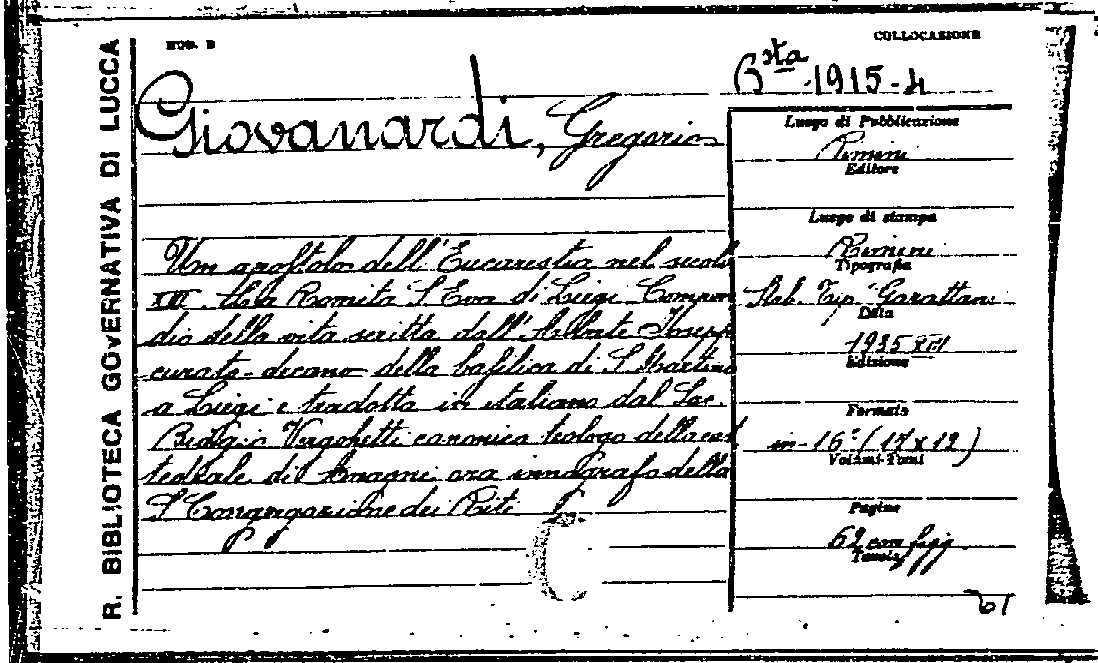 R. BIBLIOTECA GOVERNATIVA DI LUCCA
MOD. B
COLLOCASIONE
Bsta 1915-4
Giovanardi, Gregorio
Luogo di Pubblicazione
Rimini
Editore
Luogo di stampa
Rimini
Tipografia
Stab. Tip. Garattoni
Data
1935 XIII
Edizione
Formato
in-16° (17x12)
Volumi-Tomi
Pagine
62 con figg.
Tavole
Un apostolo dell'Eucarestia nel secolo
XIII. La Romita S. Eva di Liegi Compen
dio della vita scritta dall'Abate
curato-decano della basilica di S Martino
a Liegi e tradotta in italiano dal Sac.
Biagio Verghetti canonico teologo della cat
tedrale di Anagni ora innografo della
S Congregazione dei Riti